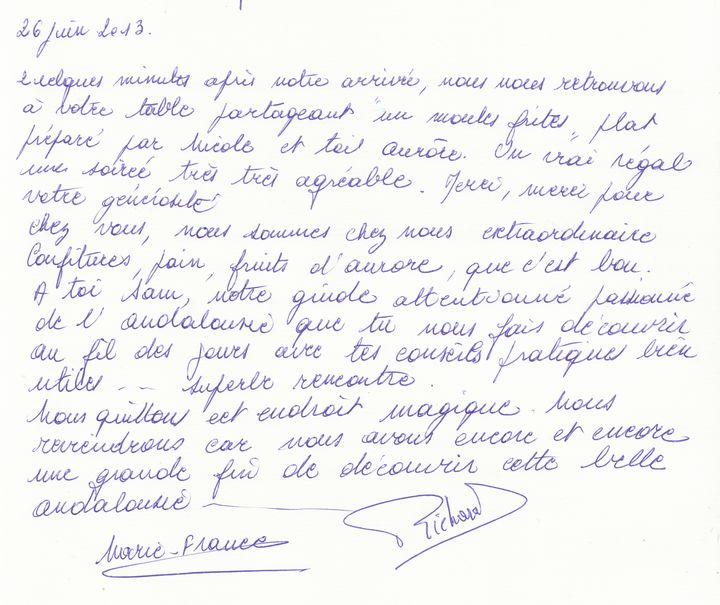 26 juin 2013.
Quelques minutes après notre arrivée, nous nous retrouvons
à votre table partageant "un moules frites" plat
préparé par Nicole et toi aurore. Un vrai régal
une soirée très très agréable. Merci, merci pour
votre générosité
chez vous, nous sommes chez nous extraordinaire
Confitures, pain, fruits d'aurore, que c'est bon.
A toi Sam, notre guide attentionné passionné
de l'andalousie que tu nous fais découvrir
au fil des jours avec tes conseils pratiques bien
utiles --- superbe rencontre.
Nous quittons cet endroit magique. Nous
reviendrons car nous avons encore et encore
une grande fin de découvrir cette belle
andalousie
Richard
Marie-France